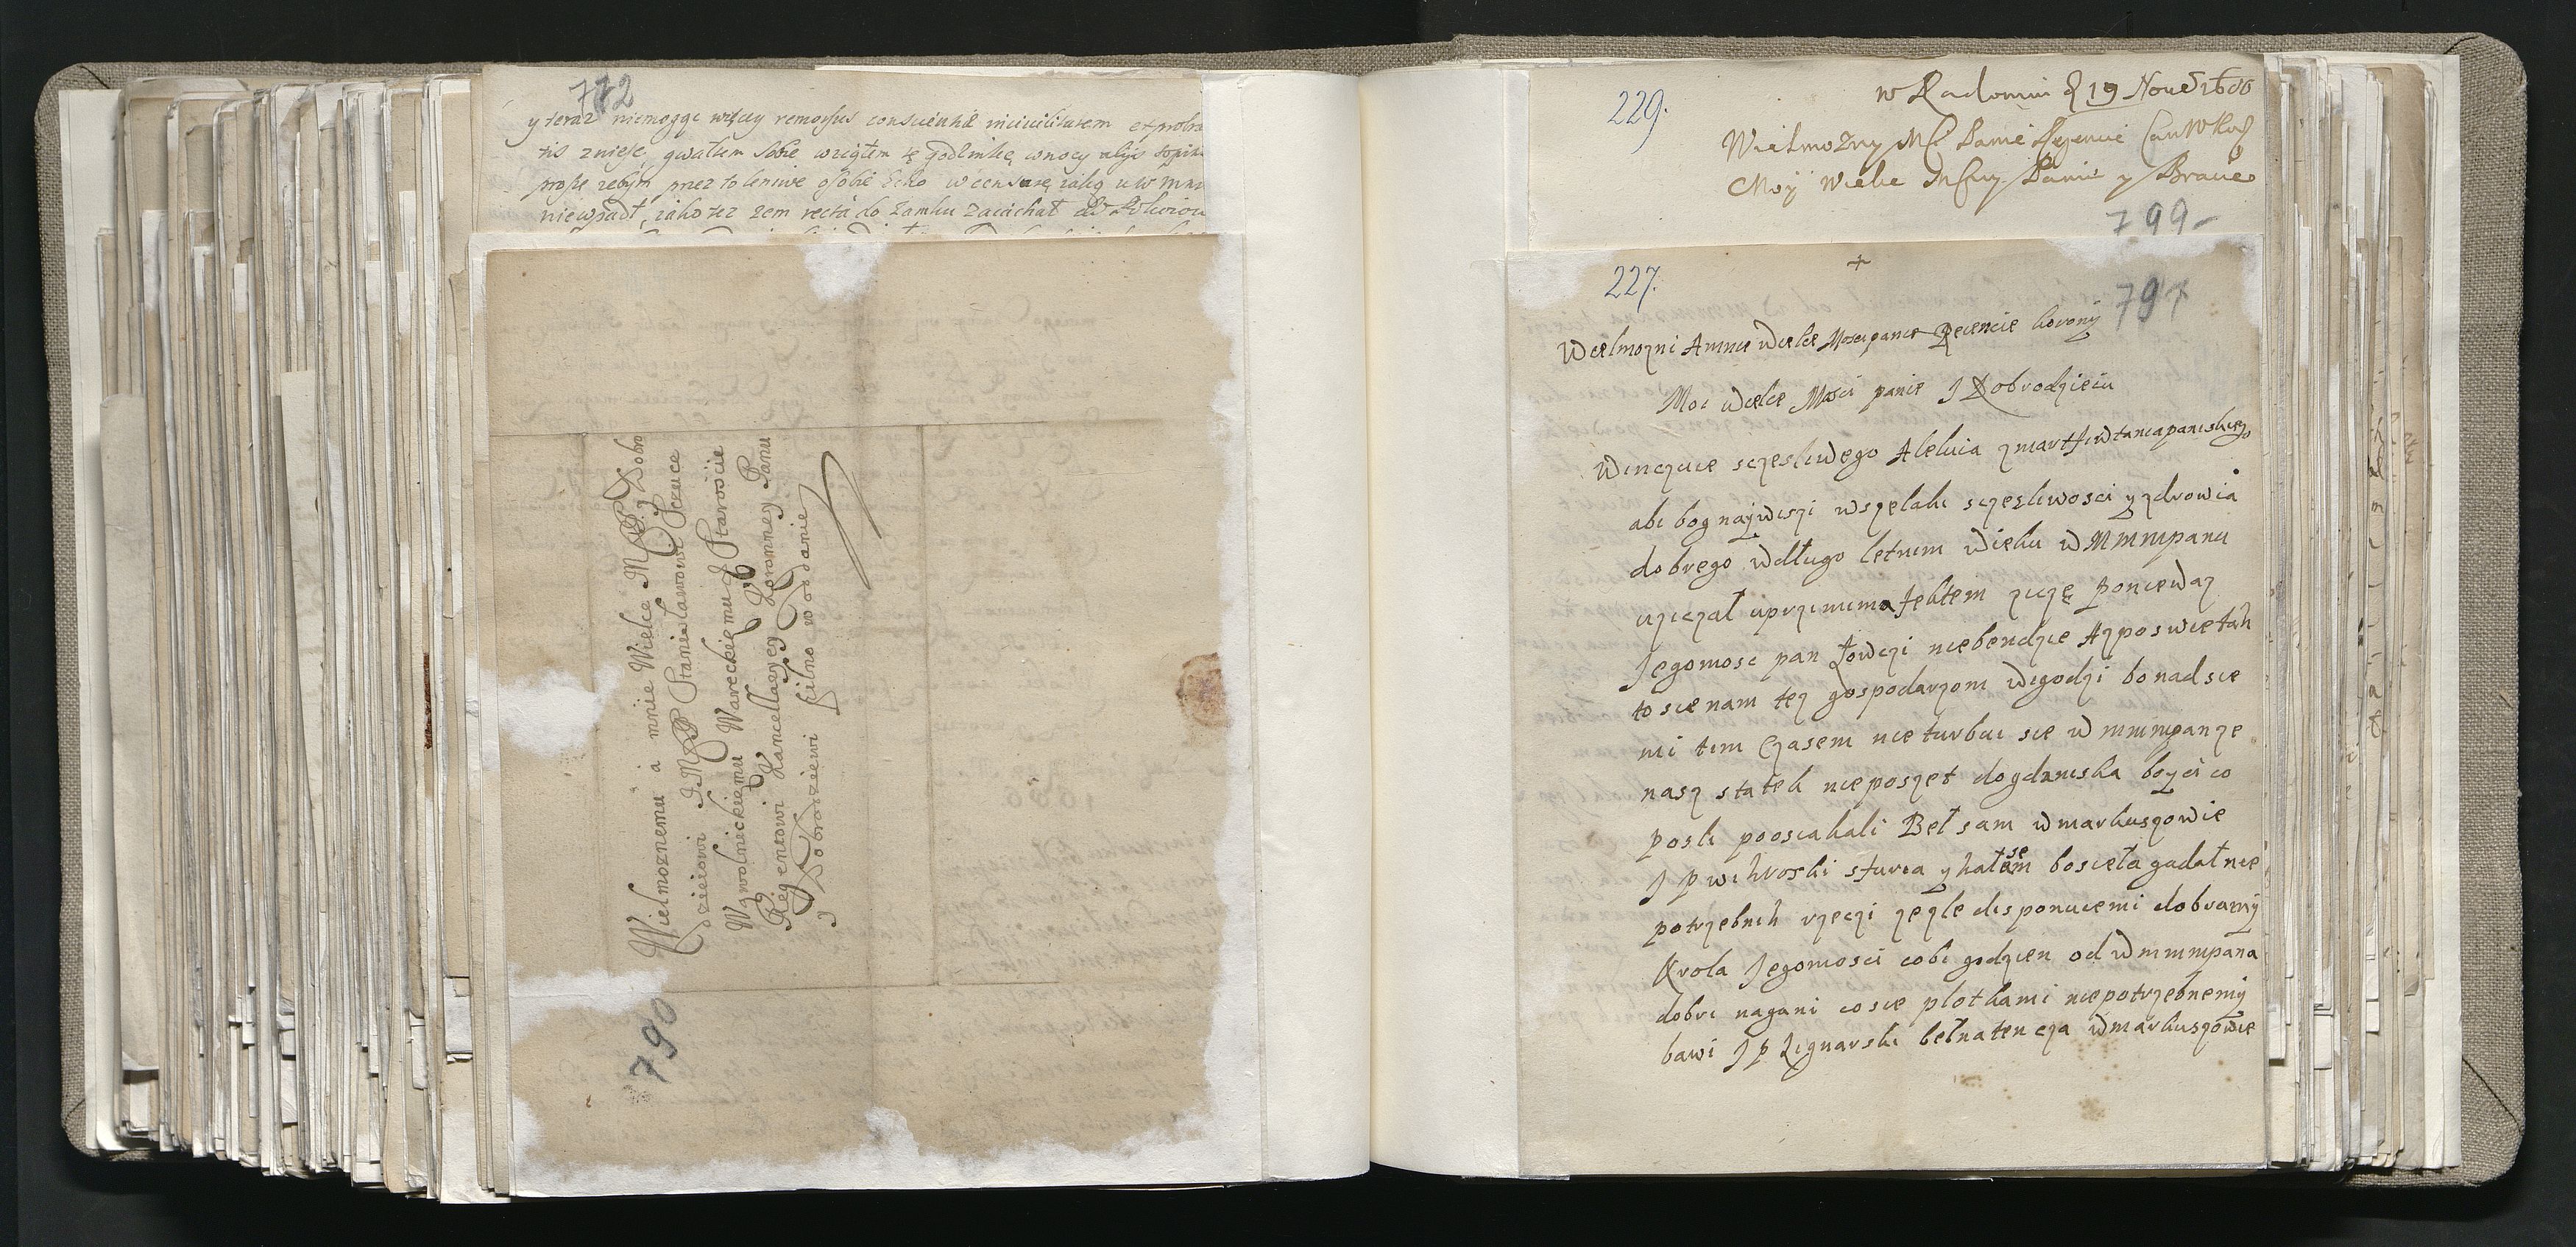 772
y teraz niemogąc więcy remorsus conscientiæ incivilitatem exprobra
tis znieść, gwałtem sobie wziąłem tę godzinkę w nocy alijs sopitis
proszę żebym przez to leniwe osobie Echo w censurę iaką u W M
niewpadł, iako też żem recta do Zamku zaiachał
Wielmoznemu á mnie Wielce MP y Dobro
dzieiowi JMP Stanisławowi Szczuce
Wąwolnickiemu Wareckiemu Staroscie
Regentowi Kancellaryey Koronney Panu
y Dobrodziewi pilno w oddanie
790
229.
w Radomiu d 19 Nove 1686
Wielmozny Mci Panie Regencie
Moy Wielce Mscwy Panie y Bracie
799-
227.
797
Wielmozni Amnie wielce Moscipanie Regencie korony
Moi wielce Mosci panie J Dobrodzieiu
Winczuie sczesliwego Aleluia zmartfiwtania paniskiego
abi bog naywiszi wszelaki sczesliwosci y zdrowia
dobrego wdługo letnim wieku W Mmmpanu
uziczał uprzimima fektem ziczę poniewaz
Jegomosc pan Łowczi niebendzie Azposwietah
to sie nam tez gospodarzom wigodzi bo nad sie
mi tim czasem nie turbui sie w mmmpan ze
nasz statek nieposzet dogdaniska bo y ci co
posli pooscakali Beł sam wmarkuszowie
J p wikroski sturca y hałasem bo sieła gadał nie
se
potrzebnih rzeczi ze zle disponuiemi dobramy
Krola Jegomosci cobi godzien od wmmmpana
dobri nagani co sie plotkami niepotrzebnemy
bawi J p Zignarski bełnatencza wmarkuszowie